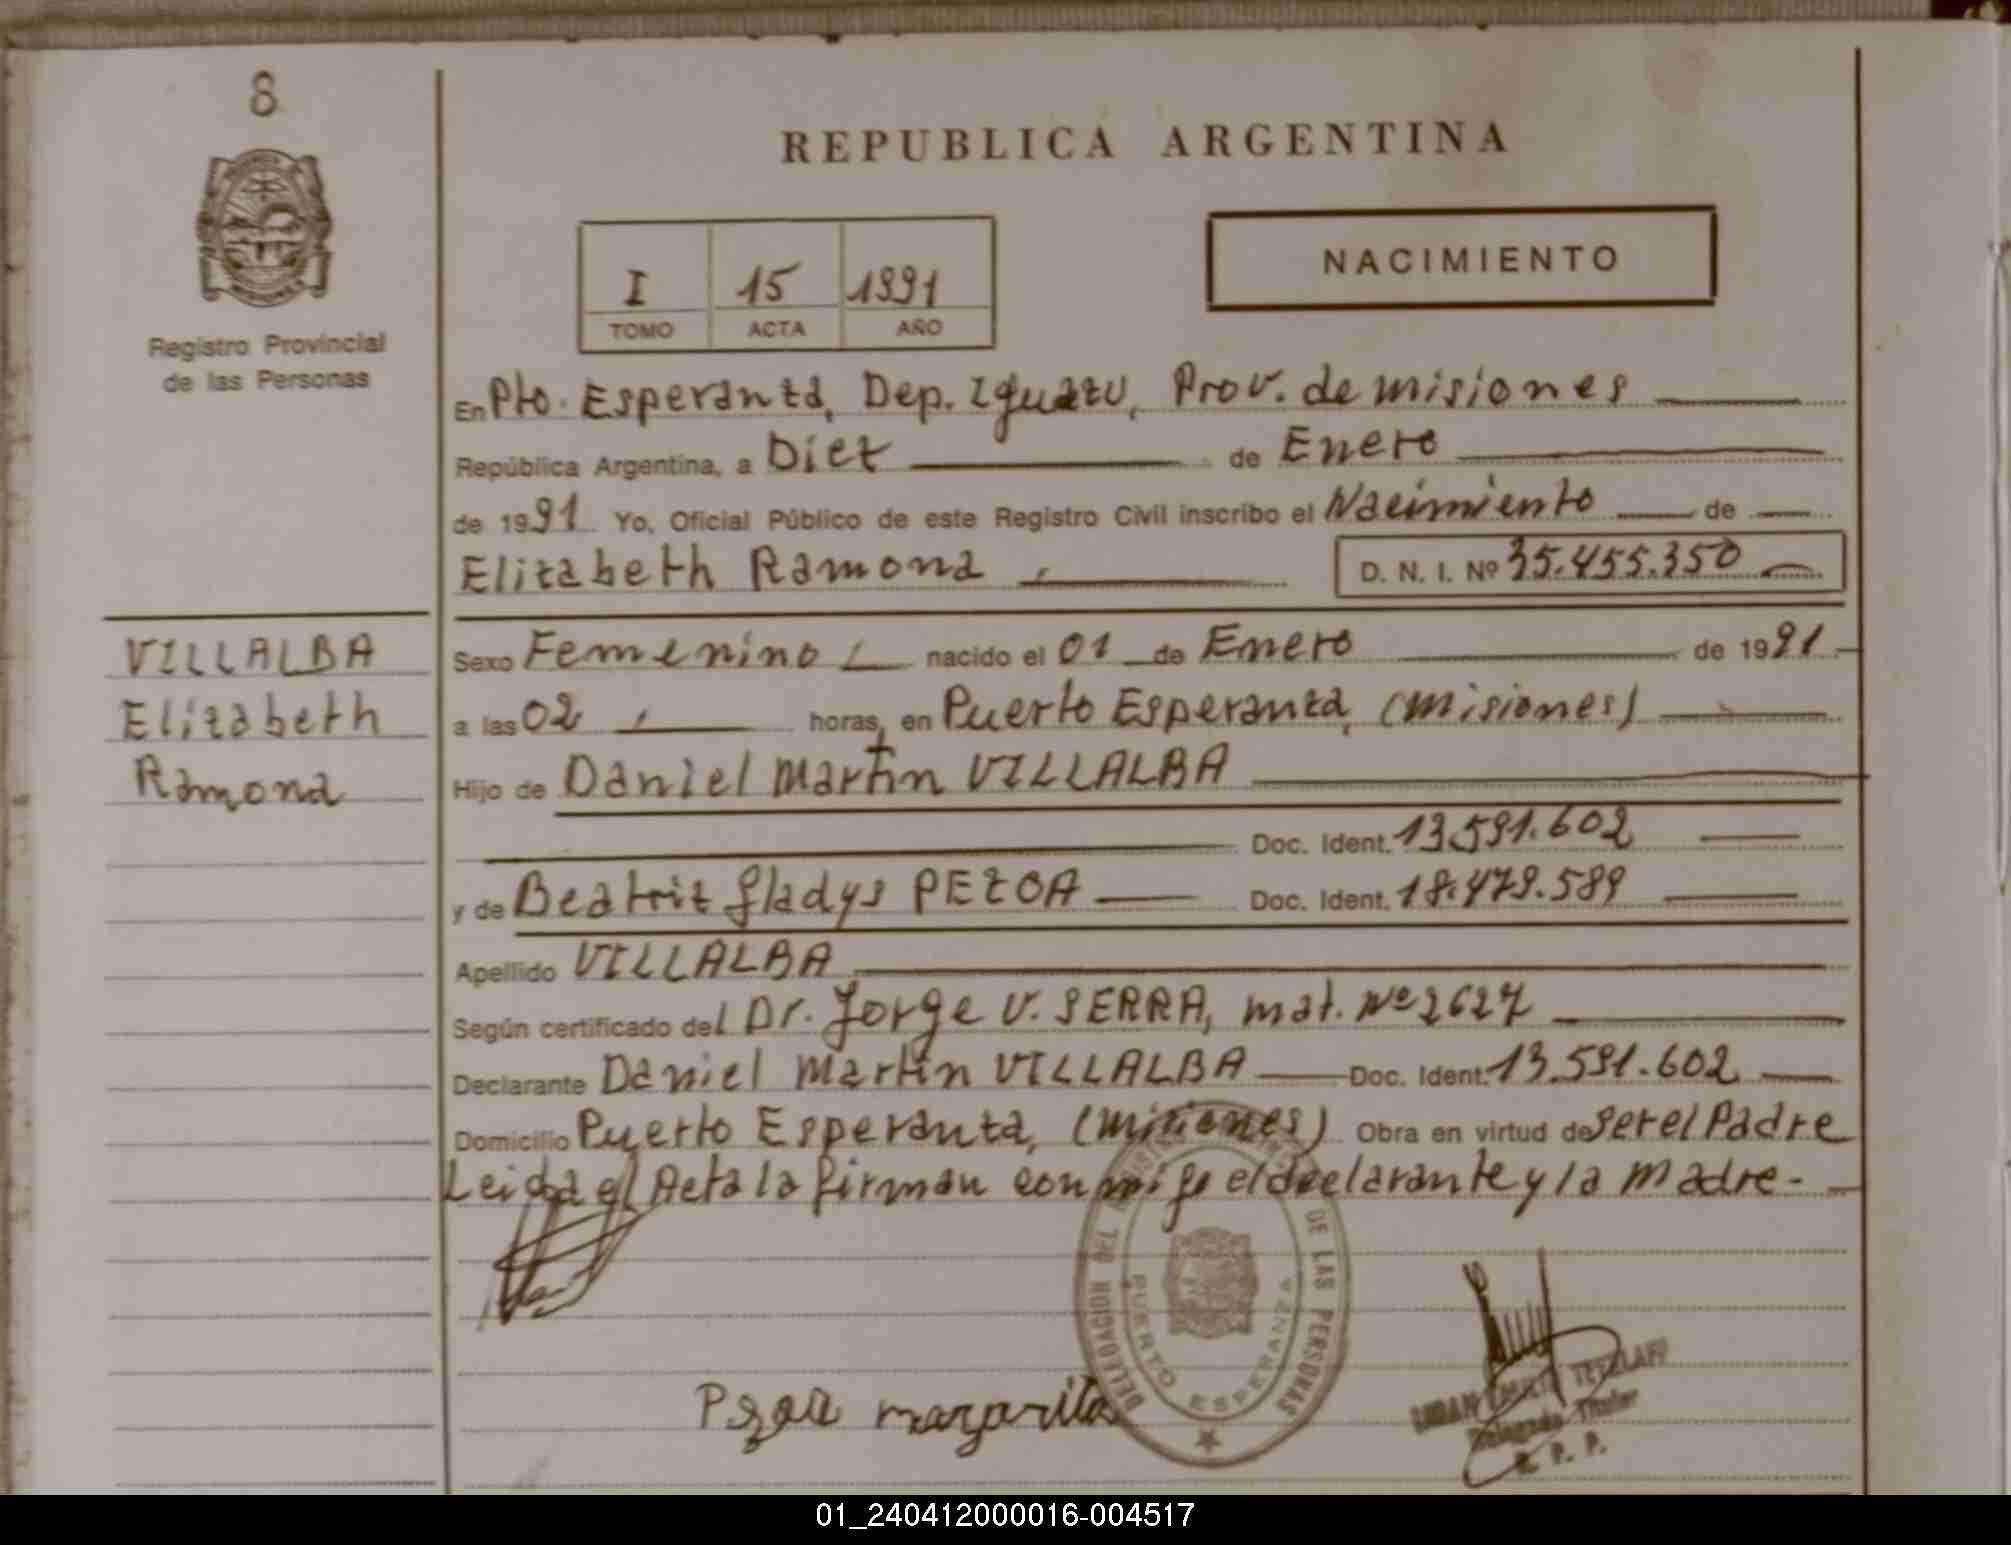 8
REPUBLICA ARGENTINA
I 15 1991
TOMO ACTA AÑO
NACIMIENTO
Registro Provincial
de las Personas
En Pto. Esperanza, Dep. Iguazu, Prov. de misiones
República Argentina, a Diez de Enero
de 1991 Yo, Oficial Público de este Registro Civil inscribo el Nacimiento de
Elizabeth Ramona D. N. I. Nº 35.455.350
VILLALBA
Elizabeth
Ramona
Sexo Femenino nacido el 01 de Enero de 1991
a las 02 horas, en Puerto Esperanza, (misiones)
Hijo de Daniel Martin VILLALBA
Doc. Ident. 13.591.602
y de Beatriz Gladys PEZOA Doc. Ident. 18.479.589
Apellido VILLALBA
Según certificado del Dr. Jorge V. SERRA, mat. Nº 2627
Declarante Daniel Martin VILLALBA Doc. Ident. 13.591.602
Domicilio Puerto Esperanza, (misiones) Obra en virtud de ser el Padre
Leida el Acta la firman conmigo el declarante y la madre.-
DELEGACION DEL DE LAS PERSONAS
PUERTO ESPERANZA
margarita
Delegado Titular
R. P. P.
01_240412000016-004517